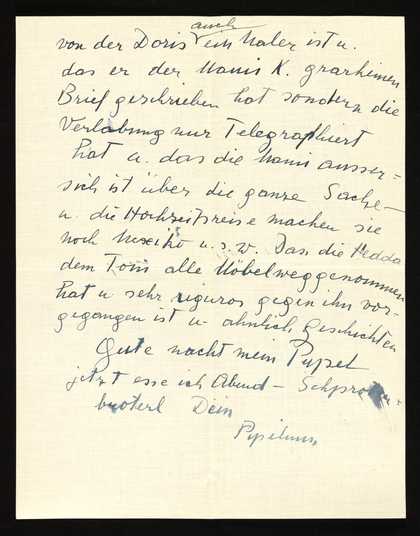 auch
von der Doris ein Maler ist u.
das er der Mami K. grarkeinen
Brief geschrieben hat sondern die
Verlobung nur Telegraphiert
hat u. das die Mami ausser-
sich ist über die ganze Sache -
u. die Hochzeitsreise machen sie
noch Mexiko u.s.w. Das die Hedda
dem Tom alle Möbel weggenommen
hat u sehr riguros gegen ihn vor-
gegangen ist u- ähnlich Geschichten
Gute nacht mein Pupel
jetzt esse ich Abend - Schprotten-
butterl Dein